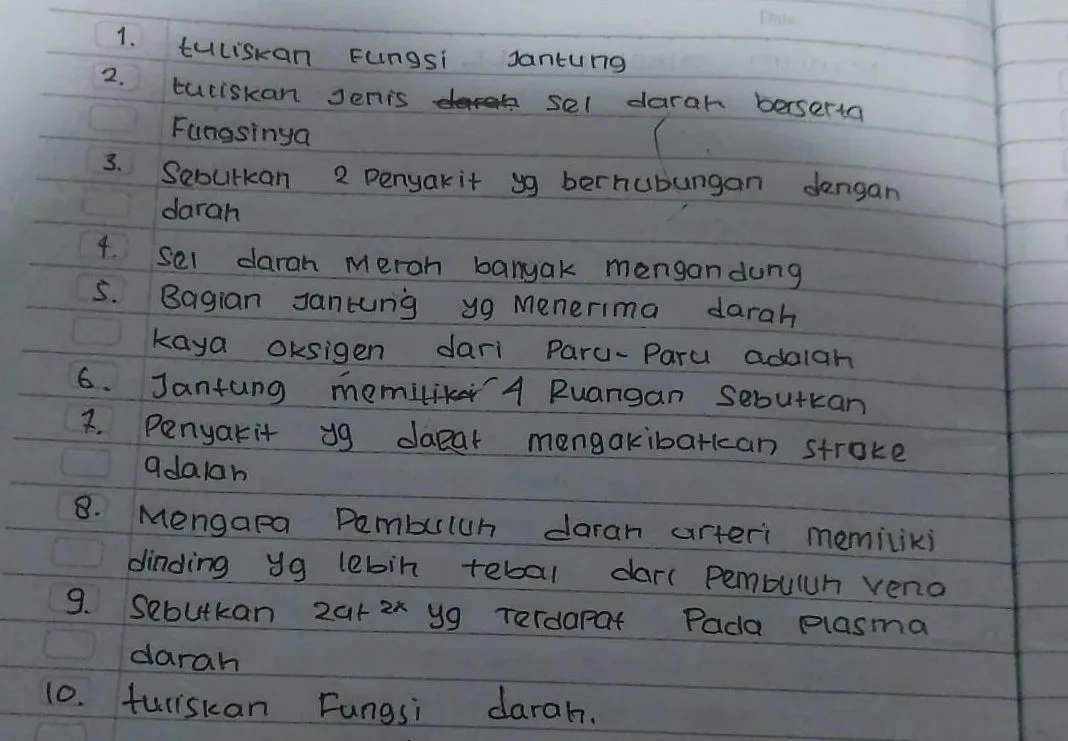 Date
1. tuliskan Fungsi Jantung
2. tuliskan Jenis darah sel darah berserta
Fungsinya
3. Sebutkan 2 Penyakit yg berhubungan dengan
darah
4. Sel darah Merah banyak mengandung
5. Bagian Jantung yg Menerima darah
kaya Oksigen dari Paru-Paru adalah
6. Jantung memiliki 4 Ruangan Sebutkan
7. Penyakit yg dapat mengakibatkan stroke
adalah
8. Mengapa Pembuluh darah arteri memiliki
dinding yg lebih tebal dari Pembuluh vena
9. Sebutkan Zat 2x yg Terdapat Pada Plasma
darah
10. tuliskan Fungsi darah.